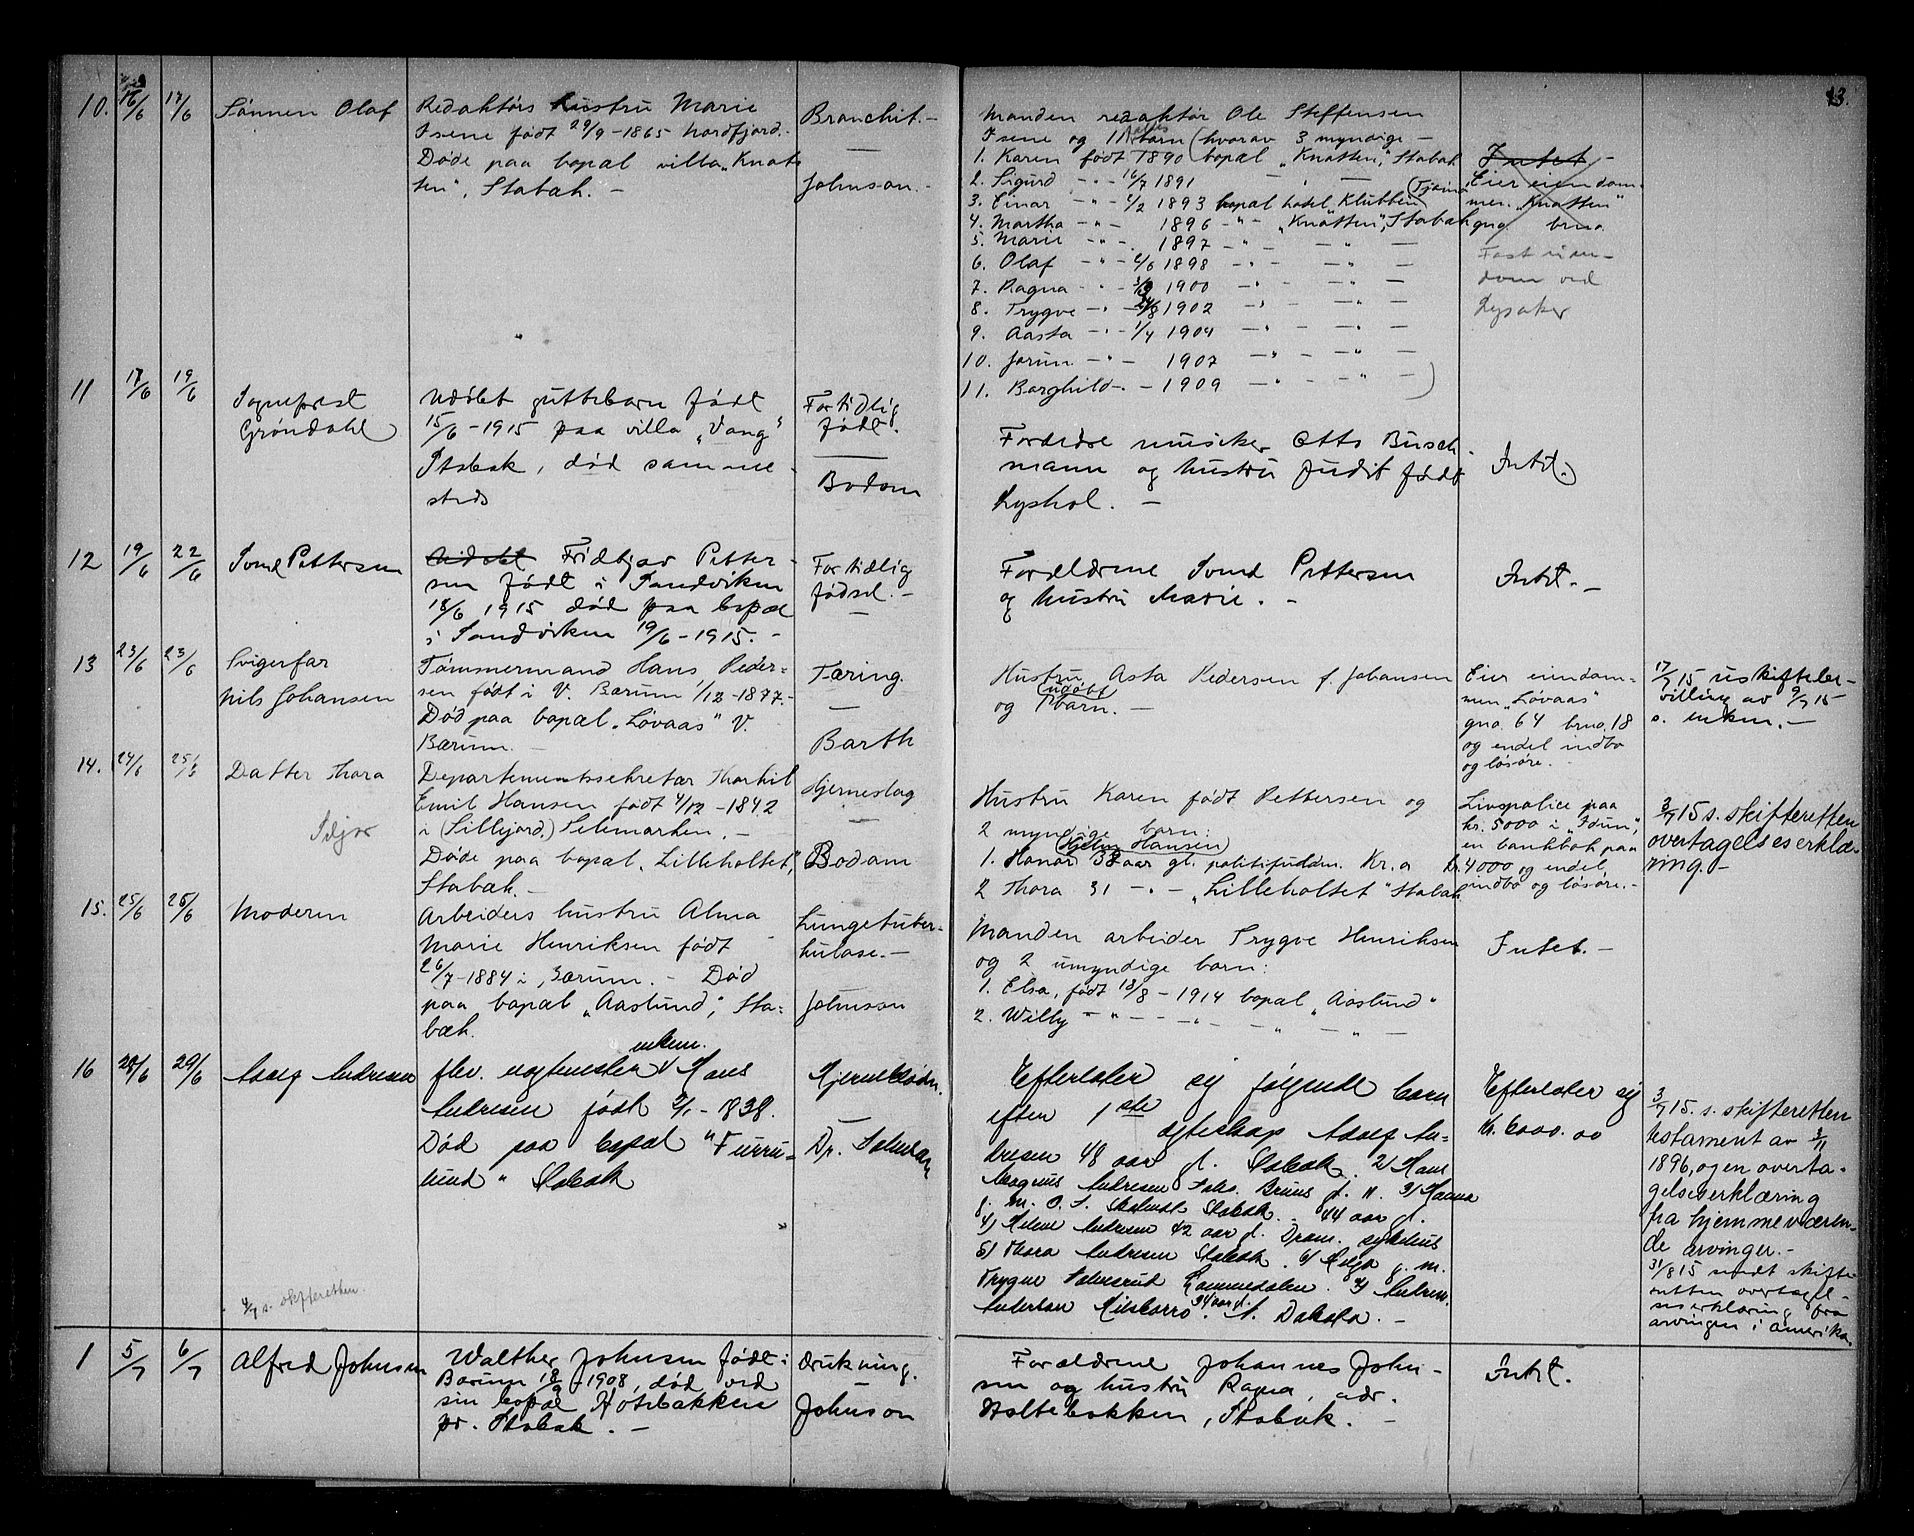 13.
10. 16/6 17/6 Sønnen Olaf
Redaktørs hustru Marie
Isene født 29/9-1865 Nordfjord.
Døde paa bopæl villa „Knat-
ten", Stabæk. -
Bronchit. -
Johnson. -
Manden redaktør Ole Steffensen
Isene og 11 barn (hvorav 3 myndige -
1. Karen født 1890 bopæl „Knatten", Stabæk
2. Sigurd -"- 16/7 1891 - " -
3. Einar -"- 4/2 1893 bopæl hotel Klubben (Tjømø
4. Martha -"- 1896 -"- „Knatten", Stabæk
5. Marie -"- 1897 -"- -"-
6. Olaf -"- 4/6 1898 -"- -"-
7. Ragna -"- 1900 -"- -"-
8. Trygve -"- 1902 -"- -"-
9. Aasta -"- 1/4 1904 -"- -"-
10. Jorun -"- 1907 -"- -"-
11. Borghild -"- 1909 -"- -"- )
Intet -
Eier eiendom-
men „Knatten"
gno. bruno.
Fast eien-
dom ved
Lysaker
11 17/6 19/6 Sogneprest
Grøndahl
Udøbt guttebarn født
15/6-1915 paa villa „Vang"
Stabæk, død samme
steds
For tidlig
født.
Bodom
Forældre musiker Otto Busch-
mann og hustru Judit født
Lyshol. -
Intet.
12 19/6 22/6 Svend Pettersen
Udøbt Fridtjov Petter-
sen født i Sandviken
18/6 1915 død paa bopæl
i Sandviken 19/6-1915. -
For tidlig
fødsel. -
Forældrene Svend Pettersen
og hustru Marie. -
Intet. -
13 23/6 23/6 Svigerfar
Nils Johansen
Tømmermand Hans Peder-
sen født i V. Bærum 1/12-1877.-
Død paa bopæl „Løvaas" V.
Bærum. -
Tæring.
Barth
Hustru Asta Pedersen f. Johansen
udøbt
og 1 barn. -
Eier eiendom-
men „Løvaas"
gno. 64 bruno. 18
og endel indbo
og løsøre. -
17/7 15 uskiftebe-
villing av 9/7 15
s. enken. -
14. 24/6 25/6 Datter Thora
Seljor
Departementssekretær Thorkil
Emil Hansen født 4/12-1842
i (Sillejord.) Telemarken. -
Døde paa bopæl „Lilleholtet",
Stabæk. -
Hjerneslag
Bodom
Hustru Karen født Pettersen og
2 myndige barn:
(Hjelm Hansen)
1. Hanar 38 aar gl. politifuldm. Kr.a
2 Thora 31 -"- „Lilleholtet" Stabæk
Livspolice paa
kr. 5000 i „Idun",
en bankbok paa
kr. 4000 og endel
indbo og løsøre. -
3/7 15 s. skifteretten
overtagelseserklæ-
ring. -
15. 25/6 25/6 Moderen
Arbeiders hustru Alma
Marie Henriksen født
26/7-1884 i Bærum. - Død
paa bopæl „Aaslund", Sta-
bæk.
Lungetuber-
kulose. -
Johnson
Manden arbeider Trygve Henriksen
og 2 umyndige barn:
1. Elsa, født 18/8-1914 bopæl „Aaslund"
2. Willy -"- -"- -"-
Intet. -
16 28/6 29/6 Adolf Andresen
enken.
fhv. vogtmester Hans
Andresen født 2/1-1838.
Død paa bopæl "Furru-
lund" Stabæk
Hjerneblødn.
Dr. Johnson
Efterlater sig følgende barn
efter 1ste ægteskap Adolf An-
dresen 48 aar gl. Stabæk. 2/ Hans
Magnus Andresen Johs. Bruns gt. 11. 3/ Hanna
g. m. O. S. Stabæk. 44 aar gl.
4/ Helene Andresen 42 aar gl. Dram. sykehus
5/ Thora Andresen Stabæk. 6/ Helga g. m.
Trygve 7/ Andrew
Anderson Hillsboro 34 aar gl. N. Dakota. -
Efterlater sig
kr. 6000.00
3/7 15. s. skifteretten
testament av 3/11
1896, og en overta-
gelseserklæring
fra hjemmeværen-
de arvinger. -
31/8 15 sendt skifte-
retten overtagel-
seserklæring fra
arvingen i Amerika
4/7 s. skifteretten.
1 5/7 6/7 Alfred Johnsen
Walther Johnsen født i
Bærum 18/9-1908, død ved
sin bopæl Holtebakken
pr. Stabæk. -
Drukning.
Johnson
Forældrene Johannes John-
sen og hustru Ragna, adr.
Holtebakken, Stabæk. -
Intet.